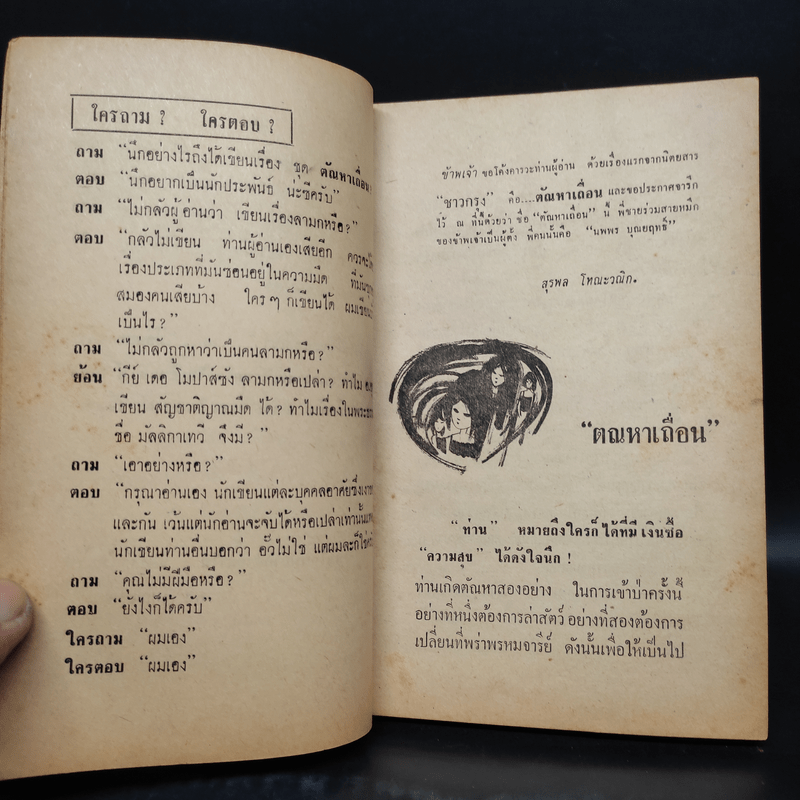 ใครถาม ? ใครตอบ ?
ถาม "นึกอย่างไรถึงได้เขียนเรื่อง ชุด ตัณหาเถื่อน
ตอบ "นึกอยากเป็นนักประพันธ์ น่ะซีครับ"
ถาม "ไม่กลัวผู้อ่านว่า เขียนเรื่องลามกหรือ?"
ตอบ "กลัวไม่เขียน ท่านผู้อ่านเองเสียอีก ควรจะ
เรื่องประเภทที่มันซ่อนอยู่ในความมืด ที่มัน
สมองคนเสียบ้าง ใคร ๆ ก็เขียนได้ ผมเขียน
เป็นไร?"
ถาม "ไม่กลัวถูกหาว่าเป็นคนลามกหรือ?"
ย้อน "กีย์ เดอ โมปาส์ซัง ลามกหรือเปล่า? ทำไม
เขียน สัญชาติญาณมืด ได้? ทำไมเรื่องใน
ชื่อ มัลลิกาเทวี จึงมี?"
ถาม "เอาอย่างหรือ?"
ตอบ "กรุณาอ่านเอง นักเขียนแต่ละบุคคลอาศัยซึ่ง
และกัน เว้นแต่นักอ่านจะจับได้หรือเปล่าเท่านั้น
นักเขียนท่านอื่นบอกว่า อั๊วไม่ใช่ แต่ผมละก็ใช่
ถาม "คุณไม่มีฝีมือหรือ?"
ตอบ "ยังไงก็ได้ครับ"
ใครถาม "ผมเอง"
ใครตอบ "ผมเอง"
ข้าพเจ้า ขอโค้งคารวะท่านผู้อ่าน ด้วยเรื่องแรกจากนิตยสาร
"ชาวกรุง" คือ....ตัณหาเถื่อน และขอประกาศจารึก
ไว้ ณ ที่นี้ด้วยว่า ชื่อ "ตัณหาเถื่อน" นี้ พี่ชายร่วมสายหมึก
ของข้าพเจ้าเป็นผู้ตั้ง พี่คนนั้นคือ "นพพร บุณยฤทธิ์"
สุรพล โทณะวณิก.
"ตัณหาเถื่อน"
"ท่าน" หมายถึงใครก็ได้ที่มีเงินซื้อ
"ความสุข" ได้ดังใจนึก !
ท่านเกิดตัณหาสองอย่าง ในการเข้าป่าครั้งนี้
อย่างที่หนึ่งต้องการล่าสัตว์ อย่างที่สองต้องการ
เปลี่ยนที่พร่าพรหมจารีย์ ดังนั้นเพื่อให้เป็นไป